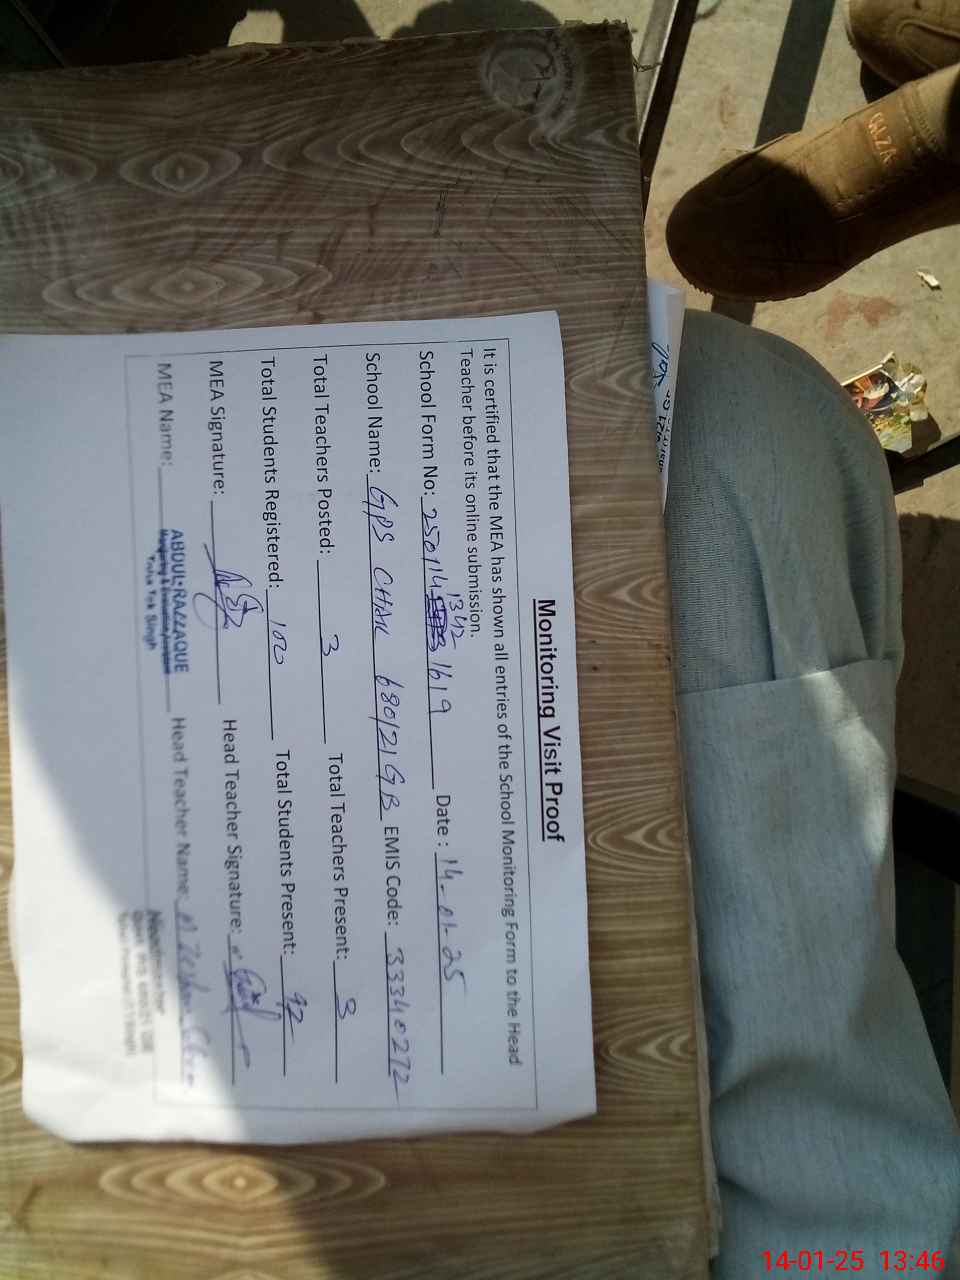 Monitoring Visit Proof
It is certified that the MEA has shown all entries of the School Monitoring Form to the Head
Teacher before its online submission.
1342
School Form No: 250114 1619 Date : 14-01-25
School Name: GPS CHAK 680/21 GB EMIS Code: 33340272
Total Teachers Posted: 3 Total Teachers Present: 3
Total Students Registered: 100 Total Students Present: 92
MEA Signature: Head Teacher Signature:
MEA Name: ABDUL RAZZAQUE Head Teacher Name:
Monitoring & Evaluation Assistant
Toba Tek Singh
CALZA
14-01-25 13:46